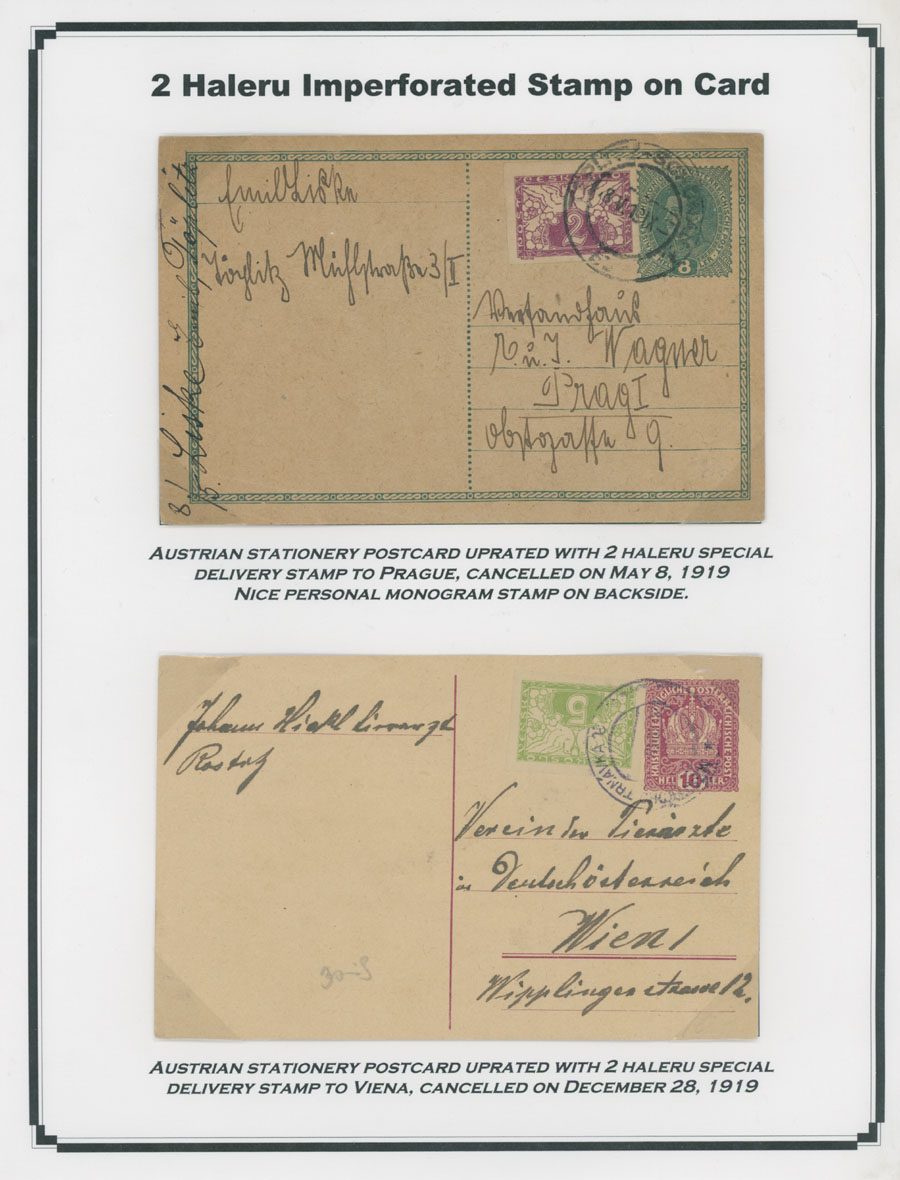 2 Haleru Imperforated Stamp on Card
Emil Liske
Mühlstraße 3/II
2
8
Versandhaus
Wagner
Prag I
Obstgasse 9.
AUSTRIAN STATIONERY POSTCARD UPRATED WITH 2 HALERU SPECIAL
DELIVERY STAMP TO PRAGUE, CANCELLED ON MAY 8, 1919
NICE PERSONAL MONOGRAM STAMP ON BACKSIDE.
Johann Hickl Tierarzt
5
TRNAVKA
KAISERLICHE KÖNIGLICHE ÖSTERREICHISCHE POST
10
HELLER
Verein der Tierärzte
in Deutschösterreich
Wien I
Wipplingerstrasse 12.
AUSTRIAN STATIONERY POSTCARD UPRATED WITH 2 HALERU SPECIAL
DELIVERY STAMP TO VIENA, CANCELLED ON DECEMBER 28, 1919